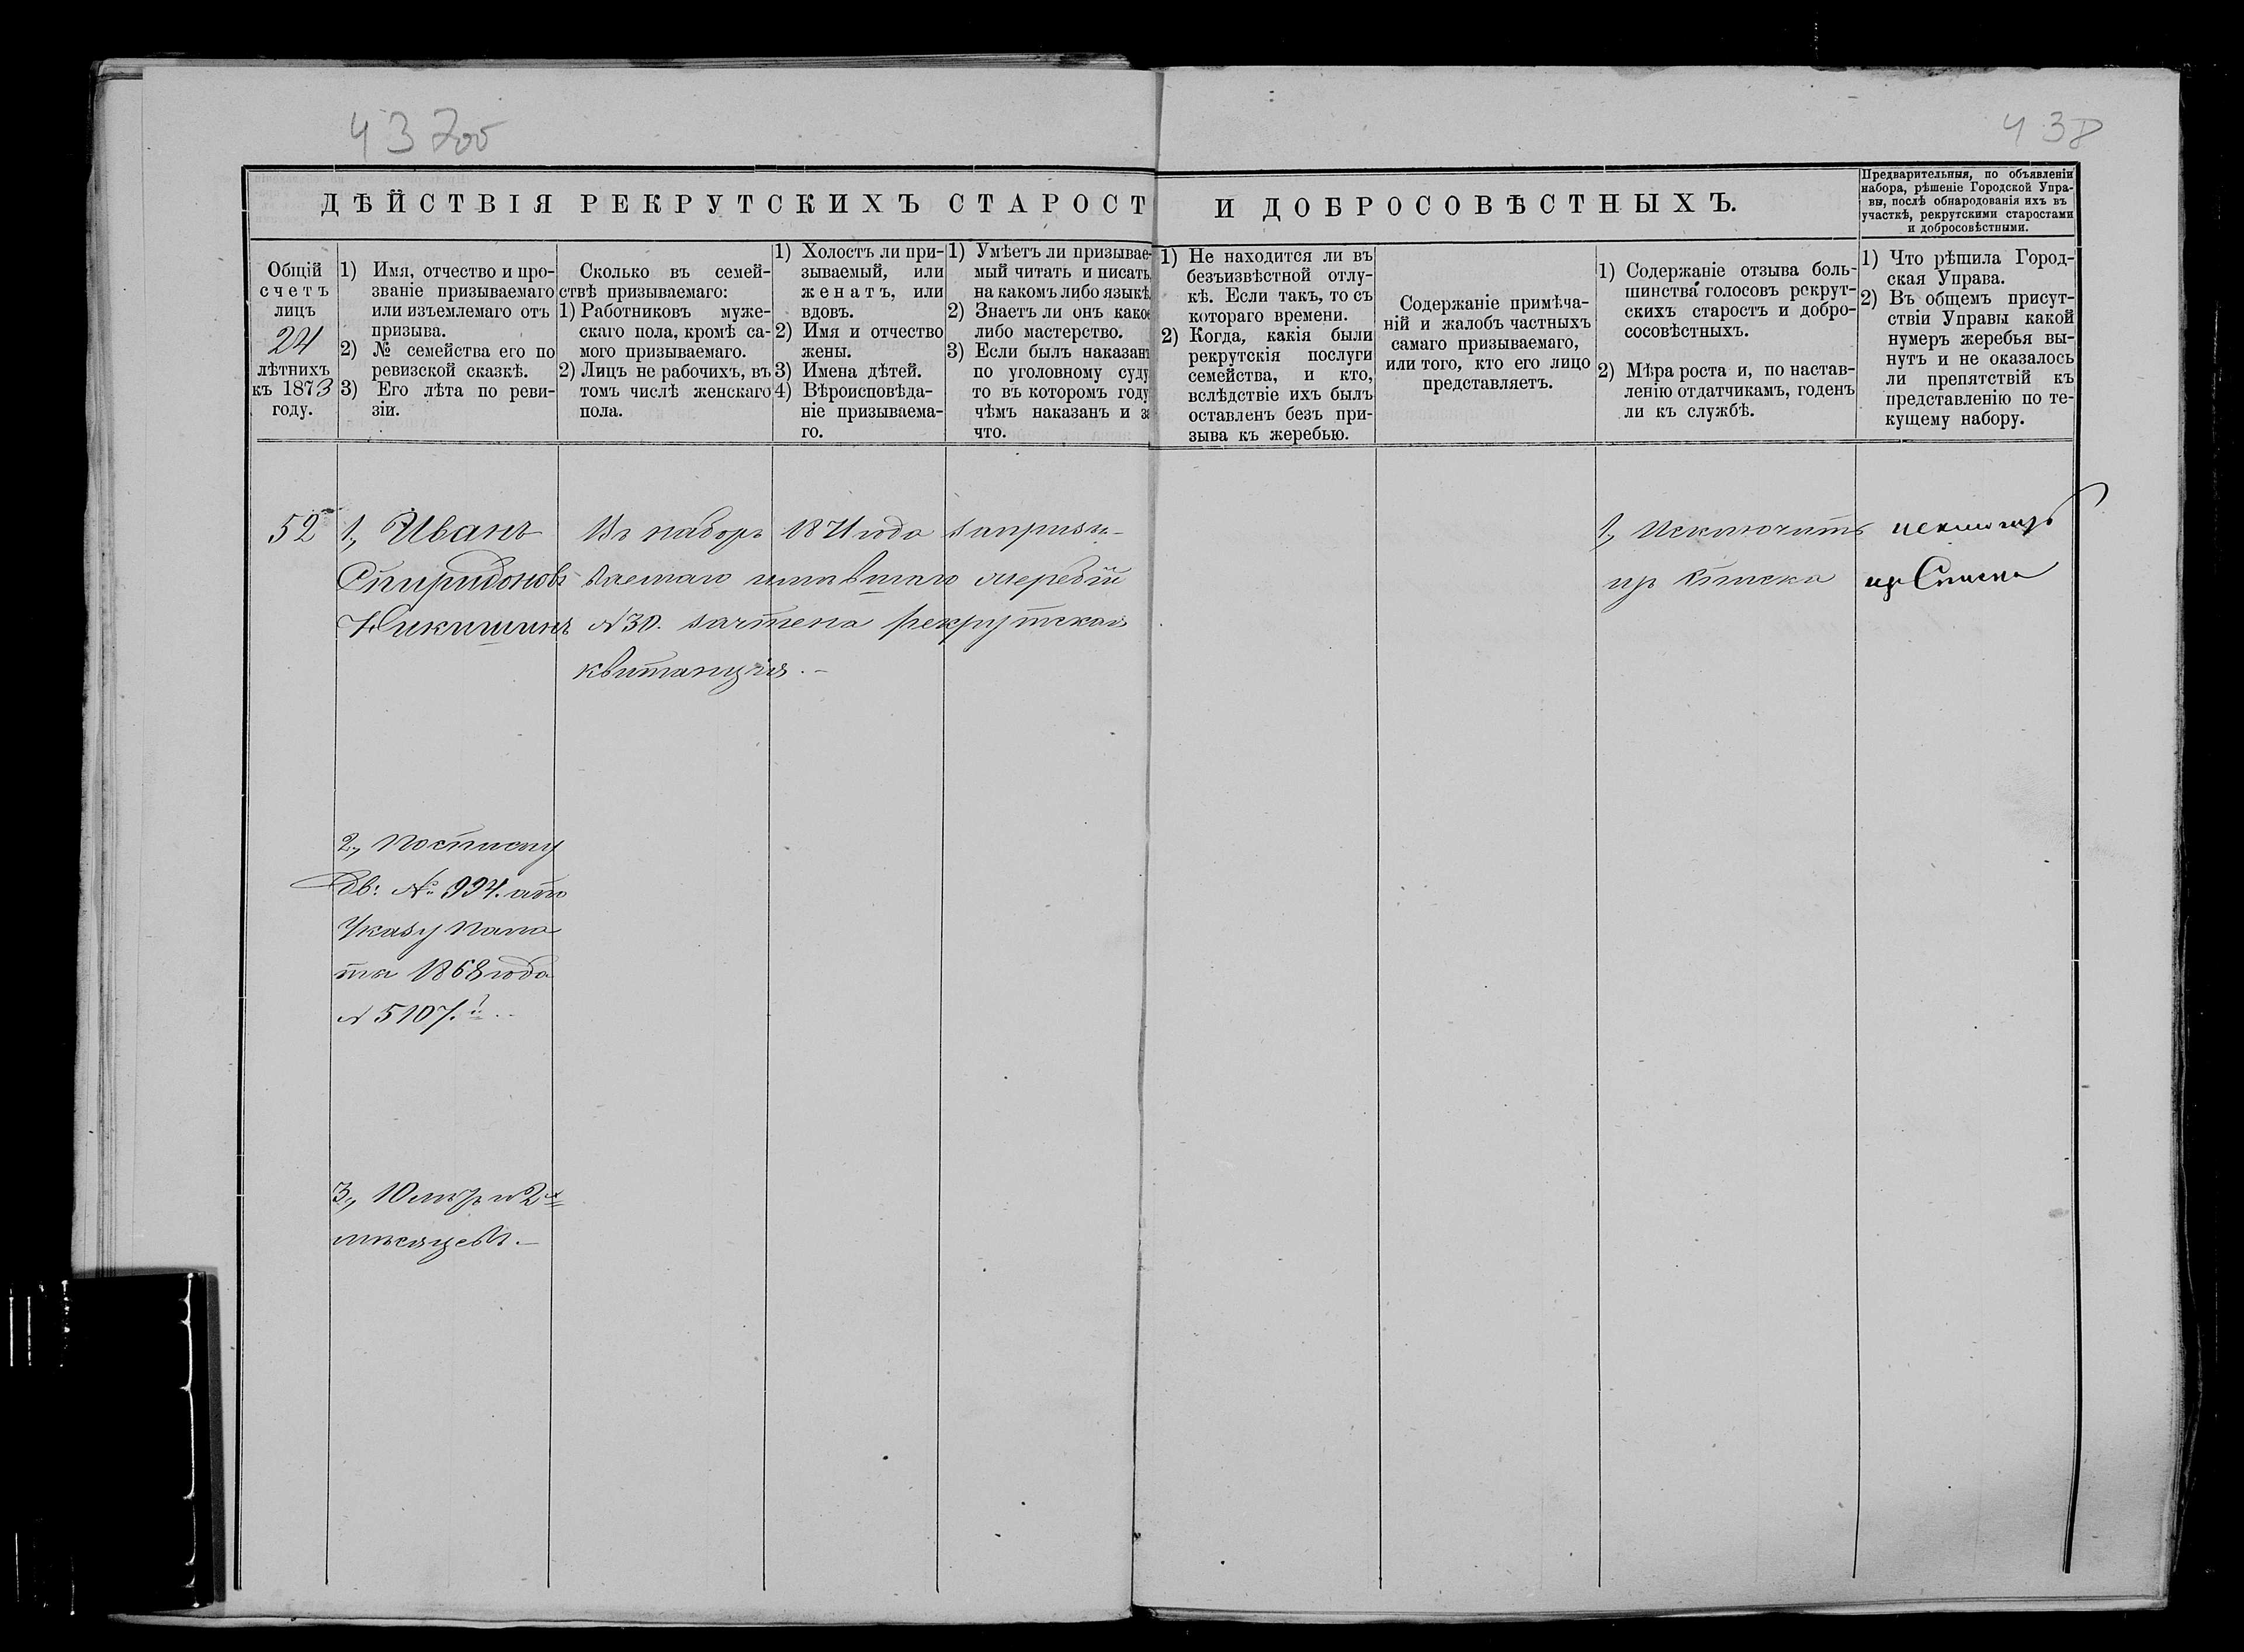 437об
438
ДѢЙСТВІЯ РЕКРУТСКИХЪ СТАРОСТ И ДОБРОСОВѢСТНЫХЪ.
Предварительныя, по объявленіи
набора, рѣшеніе Городской Упра-
вы, послѣ обнародованія ихъ въ
участкѣ, рекрутскими старостами
и добросовѣстными.
Общій
счетъ
лицъ
24
лѣтнихъ
къ 1873
году.
1) Имя, отчество и про-
званіе призываемаго
или изъемлемаго отъ
призыва.
2) № семейства его по
ревизской сказкѣ.
3) Его лѣта по реви-
зіи.
Сколько въ семей-
ствѣ призываемаго:
1) Работниковъ муже-
скаго пола, кромѣ са-
мого призываемаго.
2) Лицъ не рабочихъ, въ
томъ числѣ женскаго
пола.
1) Холостъ ли при-
зываемый, или
женатъ, или
вдовъ.
2) Имя и отчество
жены.
3) Имена дѣтей.
4) Вѣроисповѣда-
ніе призываема-
го.
1) Умѣетъ ли призывае-
мый читать и писать
на какомъ либо языкѣ
2) Знаетъ ли онъ какое
либо мастерство.
3) Если былъ наказанъ
по уголовному суду
то въ которомъ году
чѣмъ наказанъ и за
что.
1) Не находится ли въ
безъизвѣстной отлу-
кѣ. Если такъ, то съ
котораго времени.
2) Когда, какія были
рекрутскія послуги
семейства, и кто,
вслѣдствіе ихъ былъ
оставленъ безъ при-
зыва къ жеребью.
Содержаніе примѣча-
ній и жалобъ частныхъ
самаго призываемаго,
или того, кто его лицо
представляетъ.
1) Содержаніе отзыва боль-
шинства голосовъ рекрут-
скихъ старостъ и добро-
сосовѣстныхъ.
2) Мѣра роста и, по настав-
ленію отдатчикамъ, годенъ
ли къ службѣ.
1) Что рѣшила Город-
ская Управа.
2) Въ общемъ присут-
ствіи Управы какой
нумеръ жеребья вы-
нутъ и не оказалось
ли препятствій къ
представленію по те-
кущему набору.
52
1., Иванъ
Спиридоновъ
Никишинъ
2., По списку
дв: № 994. а по
Указу Пала
ты 1868 года
№ 5107.й
3., 10 лѣтъ и 2х
мѣсяцевъ.
Въ наборъ 1871 года за призы-
ваемаго имѣвшаго жеребій
№ 30. зачтена рекрутская
квитанція.
1., Исключить
изъ списка
исключить
изъ Списка